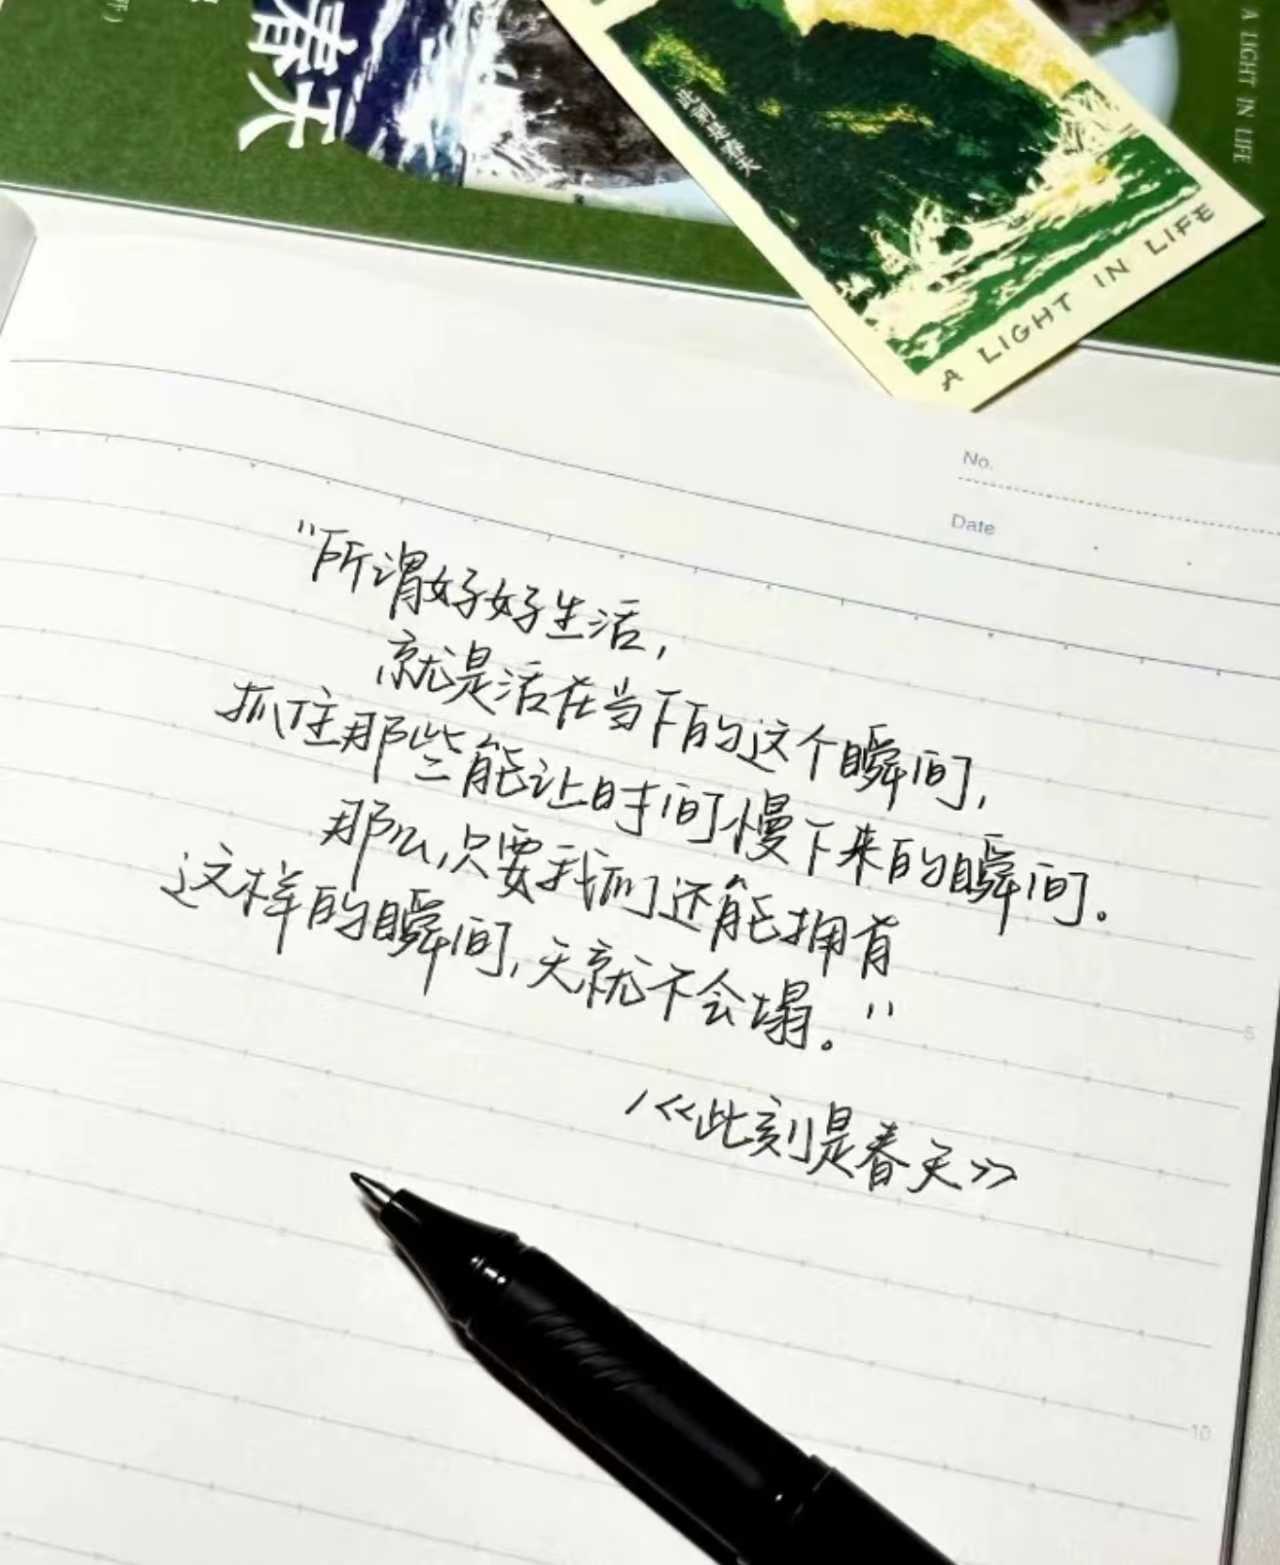 春天
A LIGHT IN LIFE
此刻是春天
A LIGHT IN LIFE
No.
Date
“所谓好好生活，
就是活在当下的这个瞬间，
抓住那些能让时间慢下来的瞬间。
那么，只要我们还能拥有
这样的瞬间，天就不会塌。”
/《此刻是春天》
5
10